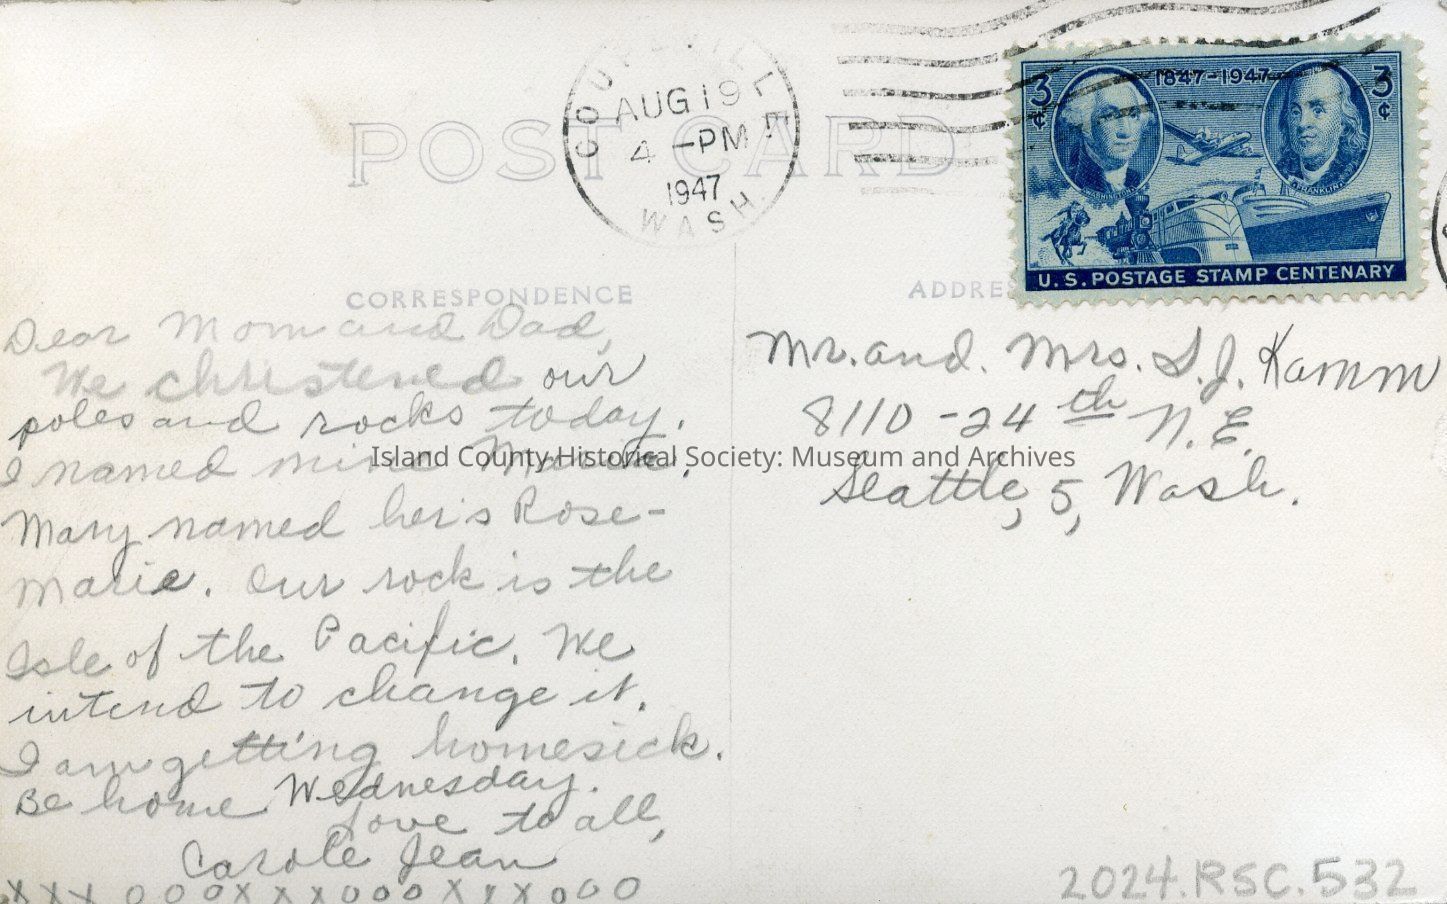 COUPEVILLE
AUG 19
4 - PM
1947
WASH.
POST CARD
3¢
1847-1947
3¢
WASHINGTON
FRANKLIN
U.S. POSTAGE STAMP CENTENARY
CORRESPONDENCE
ADDRES
Dear Mom and Dad,
We christened our
poles and rocks today.
I named mine
Mary named hers Rose-
Marie. Our rock is the
Isle of the Pacific. We
intend to change it.
I am getting homesick.
Be home Wednesday.
Love to all,
Carole Jean
XXXOOOXXXOOOXXXOOO
Mr. and. Mrs. S.J. Kamm
8110 - 24th N.E.
Seattle, 5, Wash.
Island County Historical Society: Museum and Archives
2024.RSC.532